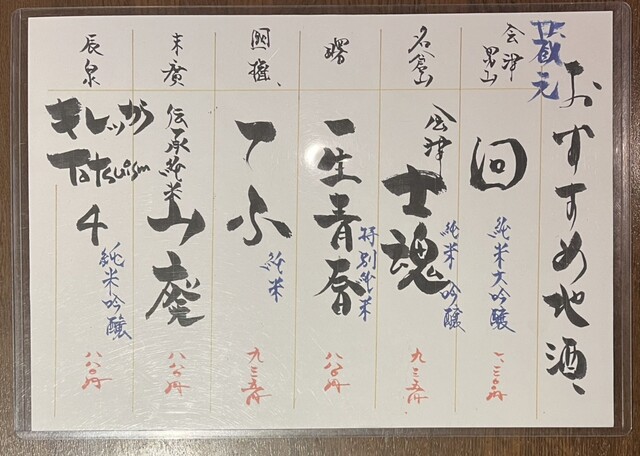 おすすめ地酒
蔵元
会津男山
回
純米大吟醸
一、一三〇円
名倉山
会津士魂
純米吟醸
九三五円
曙
一生青春
特別純米
八八〇円
国権
てふ
純米
九三五円
末廣
伝承純米
山廃
八八〇円
辰泉
キレッか
Tatsuism
4
純米吟醸
八八〇円